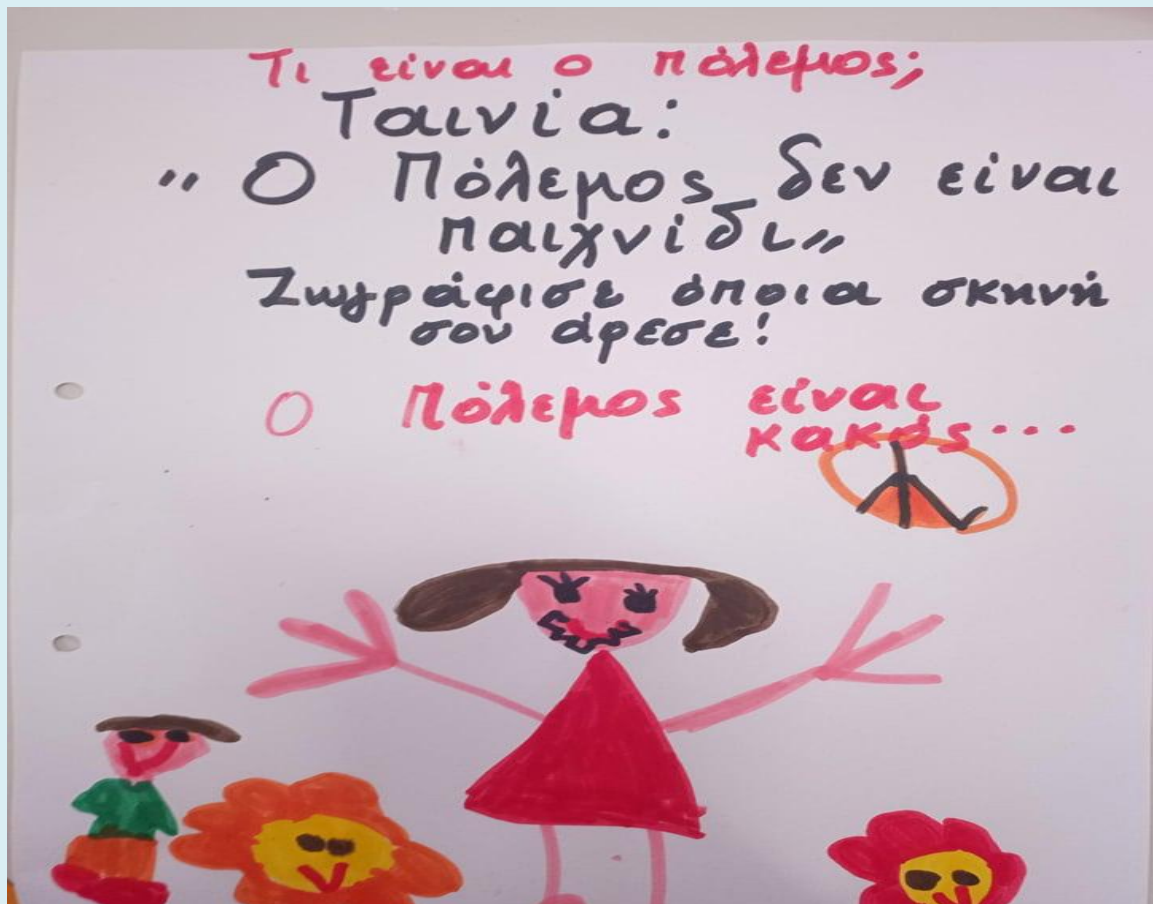 Τι είναι ο πόλεμος;
Ταινία:
" Ο Πόλεμος δεν είναι
παιχνίδι"
Ζωγράφισε όποια σκηνή
σου άρεσε!
Ο Πόλεμος είναι
κακός...